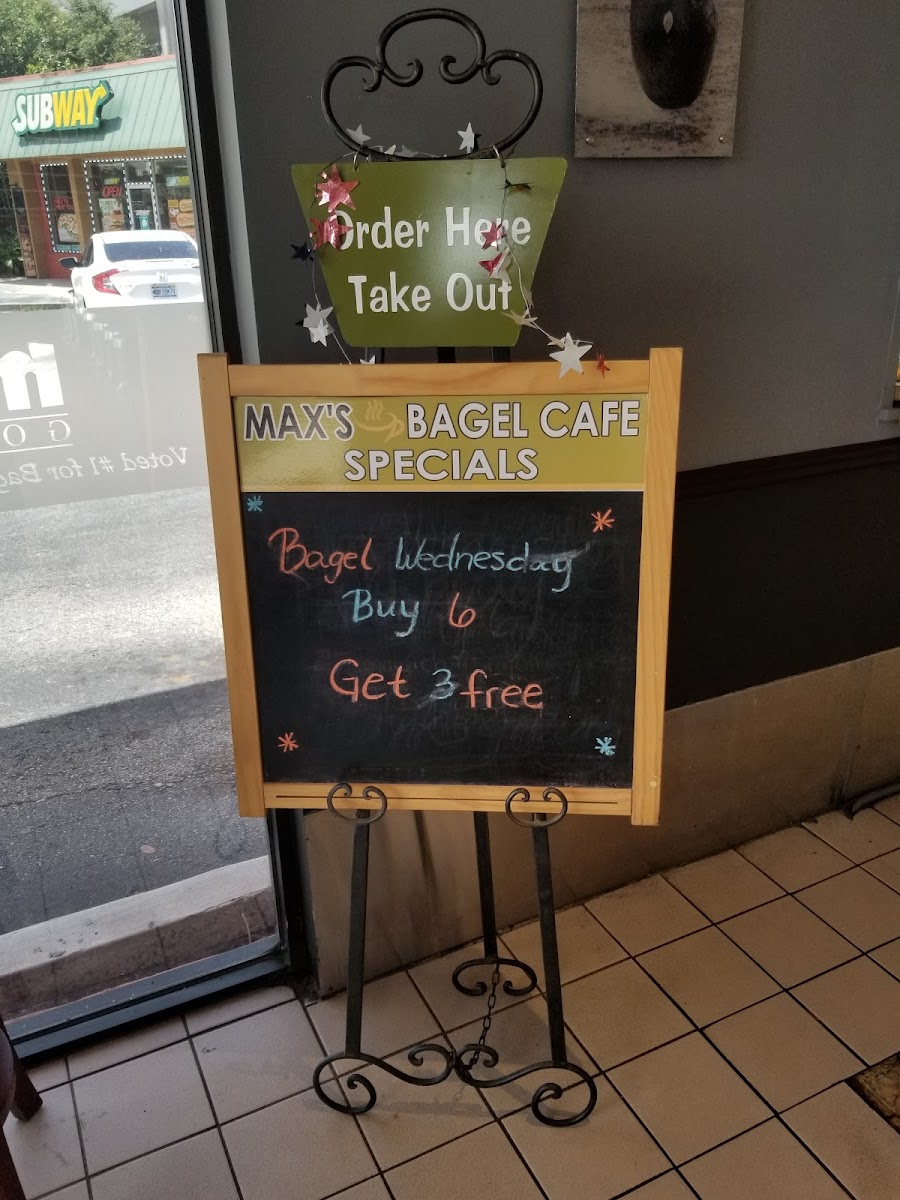 SUBWAY
OPEN
Order Here
Take Out
MAX'S BAGEL CAFE
SPECIALS
Bagel Wednesday
Buy 6
Get 3 free
m
GO
Voted #1 for Bag